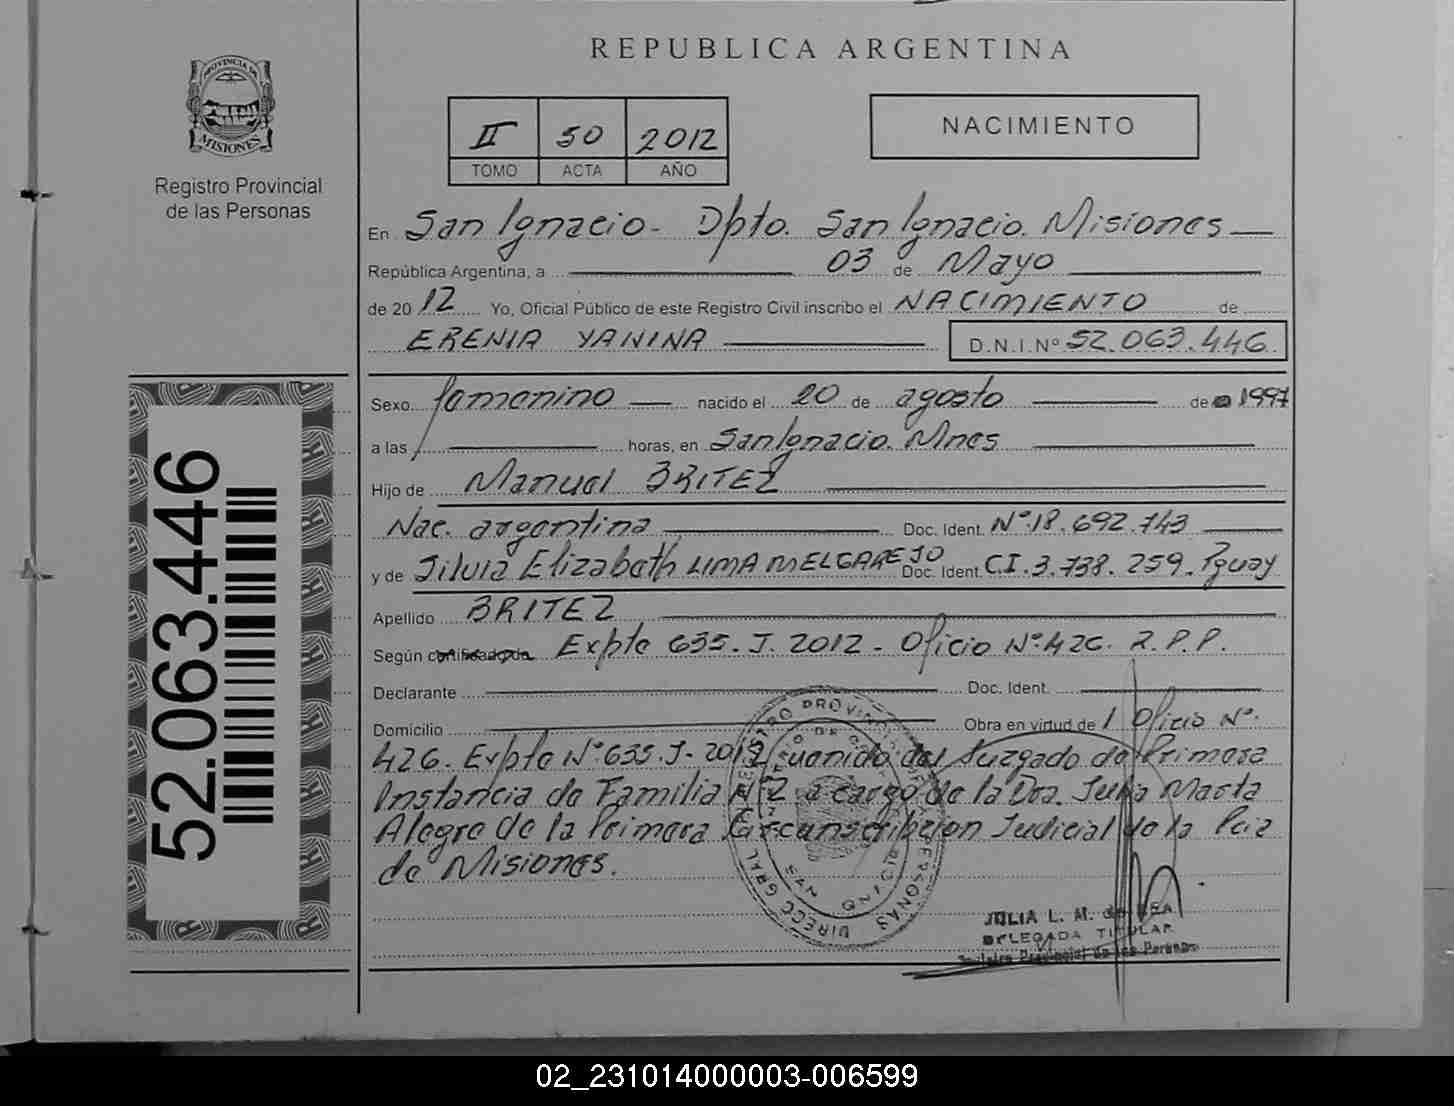 REPUBLICA ARGENTINA
PROVINCIA DE
MISIONES
Registro Provincial
de las Personas
II 50 2012
TOMO ACTA AÑO
NACIMIENTO
En San Ignacio - Dpto. San Ignacio. Misiones
República Argentina, a 03 de Mayo
de 2012 Yo, Oficial Público de este Registro Civil inscribo el NACIMIENTO de
ERENIA YANINA D.N.I. Nº 52.063.446
Sexo femenino nacido el 20 de agosto de 1997
a las horas, en San Ignacio. Mnes
Hijo de Manuel BRITEZ
Nac. argentina Doc. Ident. Nº 18.692.743
y de Silvia Elizabeth LIMA MELGAREJO Doc. Ident. C.I. 3.738.259. Pguay
Apellido BRITEZ
Según Expte 635. J. 2012 - Oficio Nº 426. R.P.P.
Declarante Doc. Ident.
Domicilio Obra en virtud de Oficio Nº
426. Expte Nº 635. J- 2012 del Juzgado de Primera
Instancia de Familia Nº 2 a cargo de la Dra. Marta
Alegre de la Primera Circunscripcion Judicial de la
de Misiones.
JULIA L. M. de
DELEGADA TITULAR
Registro Provincial de las Personas
52.063.446
02_231014000003-006599